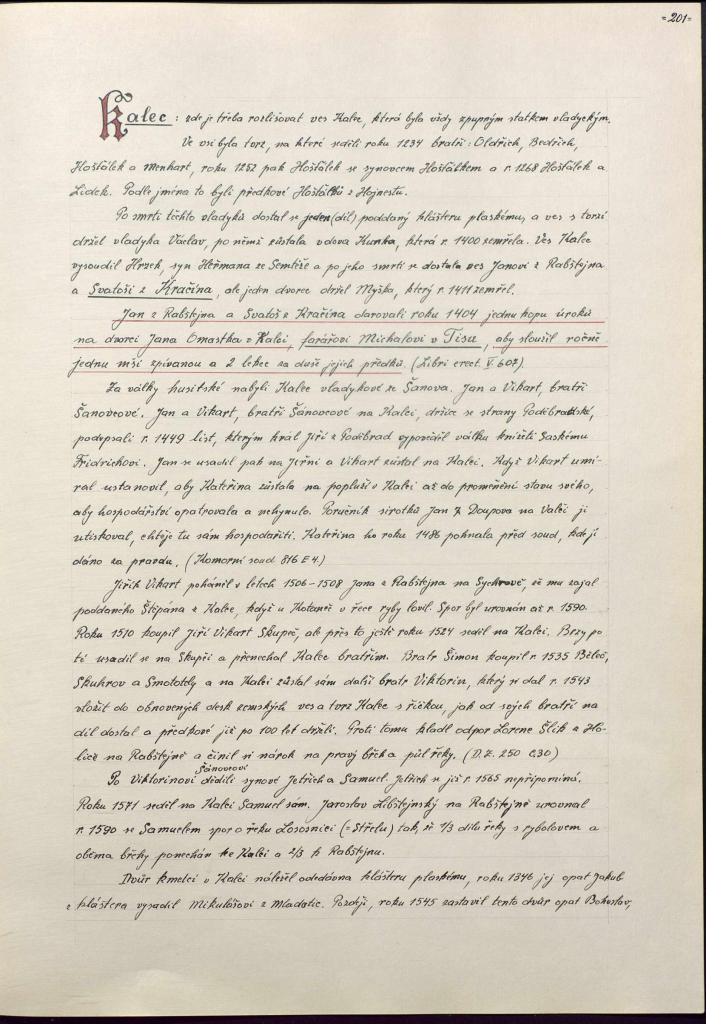 =201=
Kalec: zde je třeba rozlišovat ves Kalec, která byla vždy zpupným statkem vladyckým.
Ve vsi byla tvrz, na které seděli roku 1234 bratři: Oldřich, Bedřich,
Hošťálek a Menhart, roku 1252 pak Hošťálek se synovcem Hošťálkem a r. 1268 Hošťálek a
Lidek. Podle jména to byli předkové Hošťálků z Hojnestu.
Po smrti těchto vladyků dostal se jeden (díl) poddaný klášteru plaskému, a ves s tvrzí
držel vladyka Václav, po němž zůstala vdova Kunka, která r. 1400 zemřela. Ves Kalec
vysoudil Hrzek, syn Heřmana ze Semtěše a po jeho smrti se dostala ves Janovi z Rabštejna
a Svatoši z Kračína, ale jeden dvorec držel Myška, který r. 1411 zemřel.
Jan z Rabštejna a Svatoš z Kračína darovali roku 1404 jednu kopu úroků
na dvorci Jana Omastka v Kalci, farářovi Michalovi v Tisu, aby sloužil ročně
jednu mši zpívanou a 2 lekce za duše jejich předků. (Libri erect. V. 607).
Za války husitské nabyli Kalec vladykové ze Šanova. Jan a Vikart, bratři
Šanovcové. Jan a Vikart, bratři Šánovcové na Kalci, držíce se strany Poděbradské,
podepsali r. 1449 list, kterým král Jiří z Poděbrad vypověděl válku knížeti Saskému
Fridrichovi. Jan se usadil pak na Jeřni a Vikart zůstal na Kalci. Když Vikart umí-
ral ustanovil, aby Kateřina zůstala na popluží v Kalci až do proměnění stavu svého,
aby hospodářství opatrovala a nehynulo. Poručník sirotků Jan z Doupova na Valči ji
utiskoval, chtěje tu sám hospodařiti. Kateřina ho roku 1486 pohnala před soud, kde jí
dáno za pravdu. (Komorní soud 816 E 4.)
Jiřík Vikart poháněl v letech 1506-1508 Jana z Rabštejna na Sychrově, že mu zajal
poddaného Štěpána z Kalce, když u Kotance v řece ryby lovil. Spor byl urovnán až r. 1590.
Roku 1510 koupil Jiří Vikart Skupeč, ale přes to ještě roku 1524 seděl na Kalci. Brzy po
té usadil se na Skupči a přenechal Kalec bratřím. Bratr Šimon koupil r. 1535 Běleč,
Skuhrov a Smolotely a na Kalci zůstal sám další bratr Viktorin, který se dal r. 1543
vložit do obnovených desk zemských ves a tvrz Kalec s řičkou, jak od svých bratří na
díl dostal a předkové již po 100 let drželi. Proti tomu kladl odpor Lorenc Šlik z Ho-
líče na Rabštejně a činil si nárok na pravý břeh a půl řeky. (D.Z. 250 C.30)
Šánovcovi
Po Viktorinovi dědili synové Jetřich a Samuel. Jetřich se již r. 1565 nepřipomíná.
Roku 1571 seděl na Kalci Samuel sám. Jaroslav Libštejnský na Rabštejně urovnal
r. 1590 se Samuelem spor o řeku Lososnici (=Střelu) tak, že 1/3 dílu řeky s rybolovem a
oběma břehy ponechán ke Kalci a 2/3 k Rabštejnu.
Dvůr kmetcí v Kalci náležel odedávna klášteru plaskému, roku 1346 jej opat Jakub
z kláštera vysadil Mikulášovi z Mladotic. Později, roku 1545 zastavil tento dvůr opat Bohuslav,